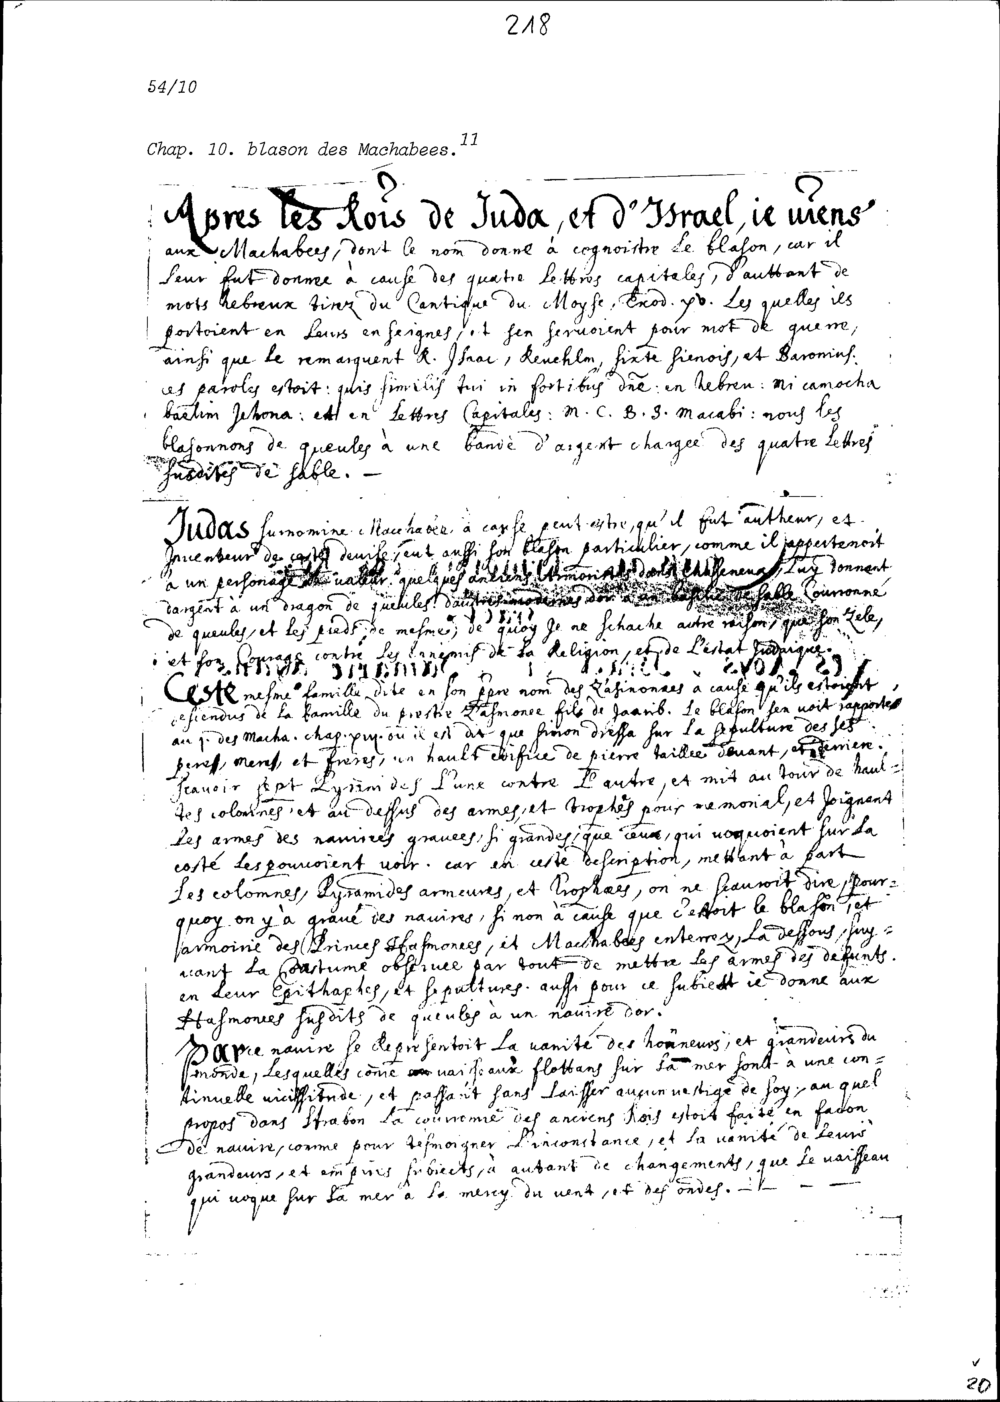 218
54/10
Chap. 10. blason des Machabees.11
Apres les Rois de Juda, et d'Israel, ie viens
aux Machabees, dont le nom donne à cognoistre le blason, car il
leur fut donnee à cause des quatre lettres capitales, d'auttant de
mots hebreux tirez du Cantique du Moyse, Exod. xv. Les quelles ils
portoient en leurs enseignes, et sen servoient pour mot de guerre,
ainsi que le remarquent R. Isaac, Reuchlin, sixte sienois, et Baronius.
ces paroles estoit: quis similis tui in fortibus dñe: en hebreu: mi camocha
baelim Jehona: et en lettres Capitales: M. C. B. J. Macabi: nous les
blasonnons de gueules à une bande d'argent chargee des quatre lettres
susdites de sable. —
Judas surnomme Macchabée à cause peut estre, qu'il fut autheur, et
Inventeur de ceste devise, eut aussi son blason particulier, comme il appertenoit
à un personage de valeur, quelques anciens Armorials dans Chasseneux, luy donnent
dargent à un dragon de gueules, d'autres modernes dor à un basilic de sable Couronné
de gueules, et les pieds de mesme; de quoy Je ne schache autre raison, que son Zele,
et son Courage contre les Ennemis de la Religion, et de l'estat Judaique.
Ceste mesme famille dite en son ppre nom des Zasmonnes à cause qu'ils estoient
cesiendus de la famille du prestre Zasmonee fils de Jaarib. Le blason sen voit rapporté
au j. des Macha. chap. xiij. où il est dit que simon dressa sur la sepulture des ses
peres, meres, et freres, un hault edifice de pierre taillee devant, et derriere.
scavoir sept Pyramides l'une contre l'autre, et mit au tour de haul=
tes colomnes, et au dessus des armes, et trophes pour memorial, et Joignant
les armes des navires gravees, si grandes, que ceux, qui voquoient sur la
costé les pouvoient voir. car en ceste description, mettant à part
les colomnes, Pyramides armeures, et Trophaes, on ne scauroit dire, pour=
quoy on y à gravé ces navires, si non à cause que c'estoit le blason, et
armoirie des Princes Hasmonees, et Macchabees enterrez, la dessous, suy=
vant la Coustume observee par tout de mettre les armes des defunts.
en leur Epithaphes, et sepultures. aussi pour ce subiect ie donne aux
Hasmonees susdits de gueules à un navire dor.
Par ce navire se representoit la vanité des honneurs, et grandeurs du
monde, lesquelles comē vaisseaux flottans sur la mer sont à une con=
tinuelle vicissitude, et passant sans laisser aucun vestige de soy, au quel
propos dans Strabon la couronne des anciens Rois estoit faite en facon
de navire, comme pour tesmoigner l'inconstance, et la vanité de leurs
grandeurs, et empires subiects, à autant de changements, que le vaisseau
qui voque sur la mer à la mercy du vent, et des ondes.
20